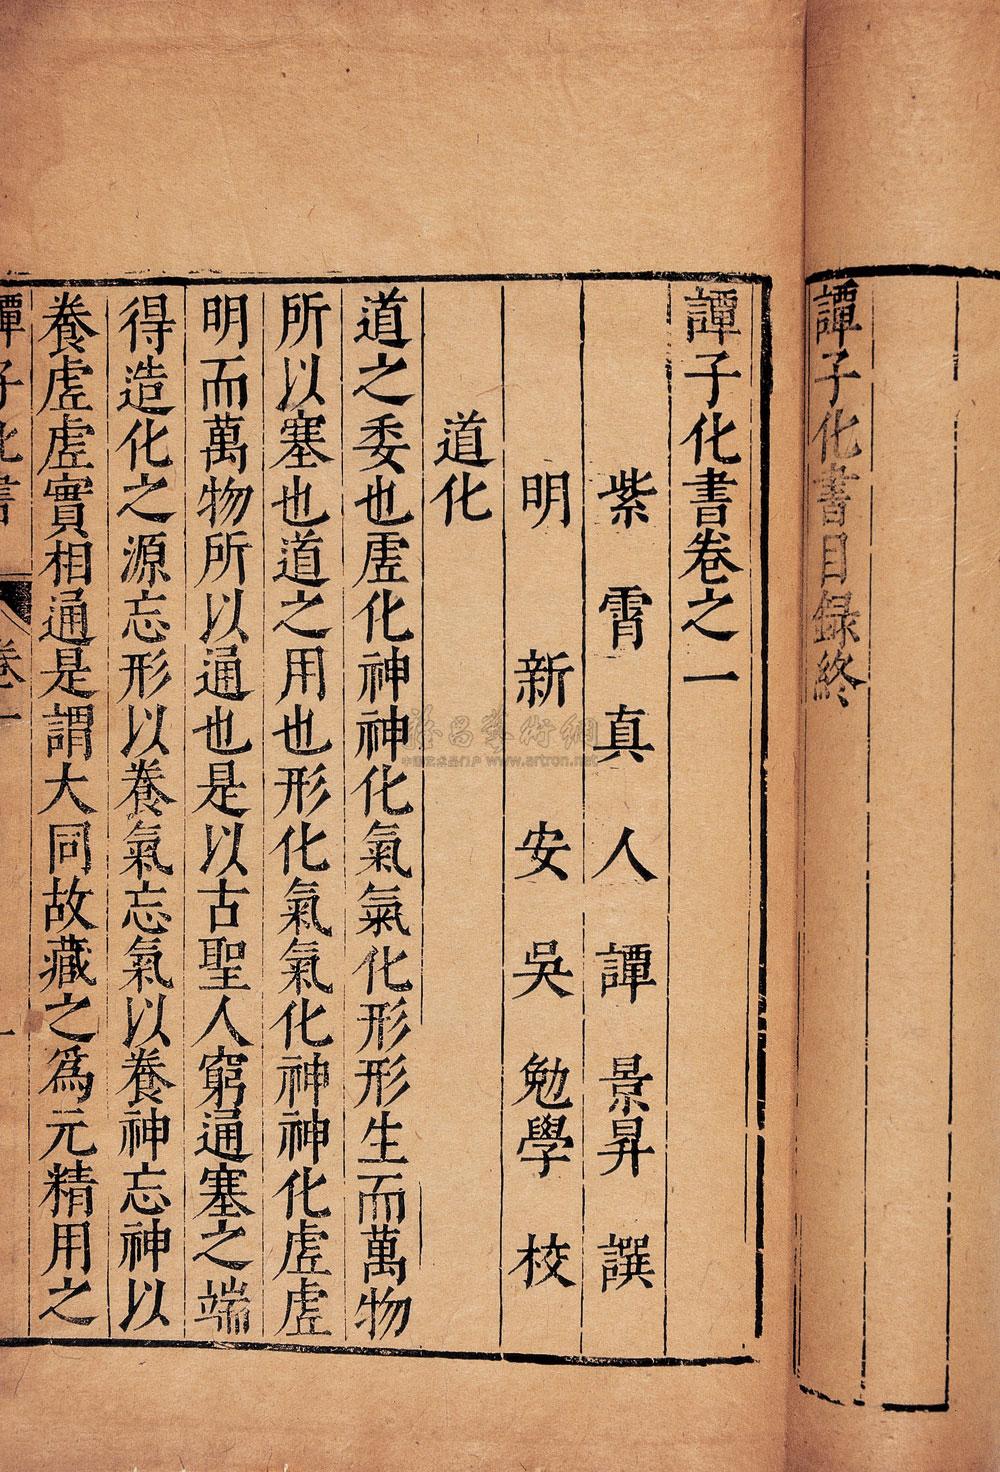 譚子化書目録終
譚子化書卷之一
紫霄真人譚景昇譔
明新安吳勉學校
道化
道之委也虗化神神化氣氣化形形生而萬物
所以塞也道之用也形化氣氣化神神化虗虗
明而萬物所以通也是以古聖人窮通塞之端
得造化之源忘形以養氣忘氣以養神忘神以
養虗虗實相通是謂大同故藏之爲元精用之
譚子化書
卷一
一
雅昌藝術網
中国艺术品门户 www.artron.net